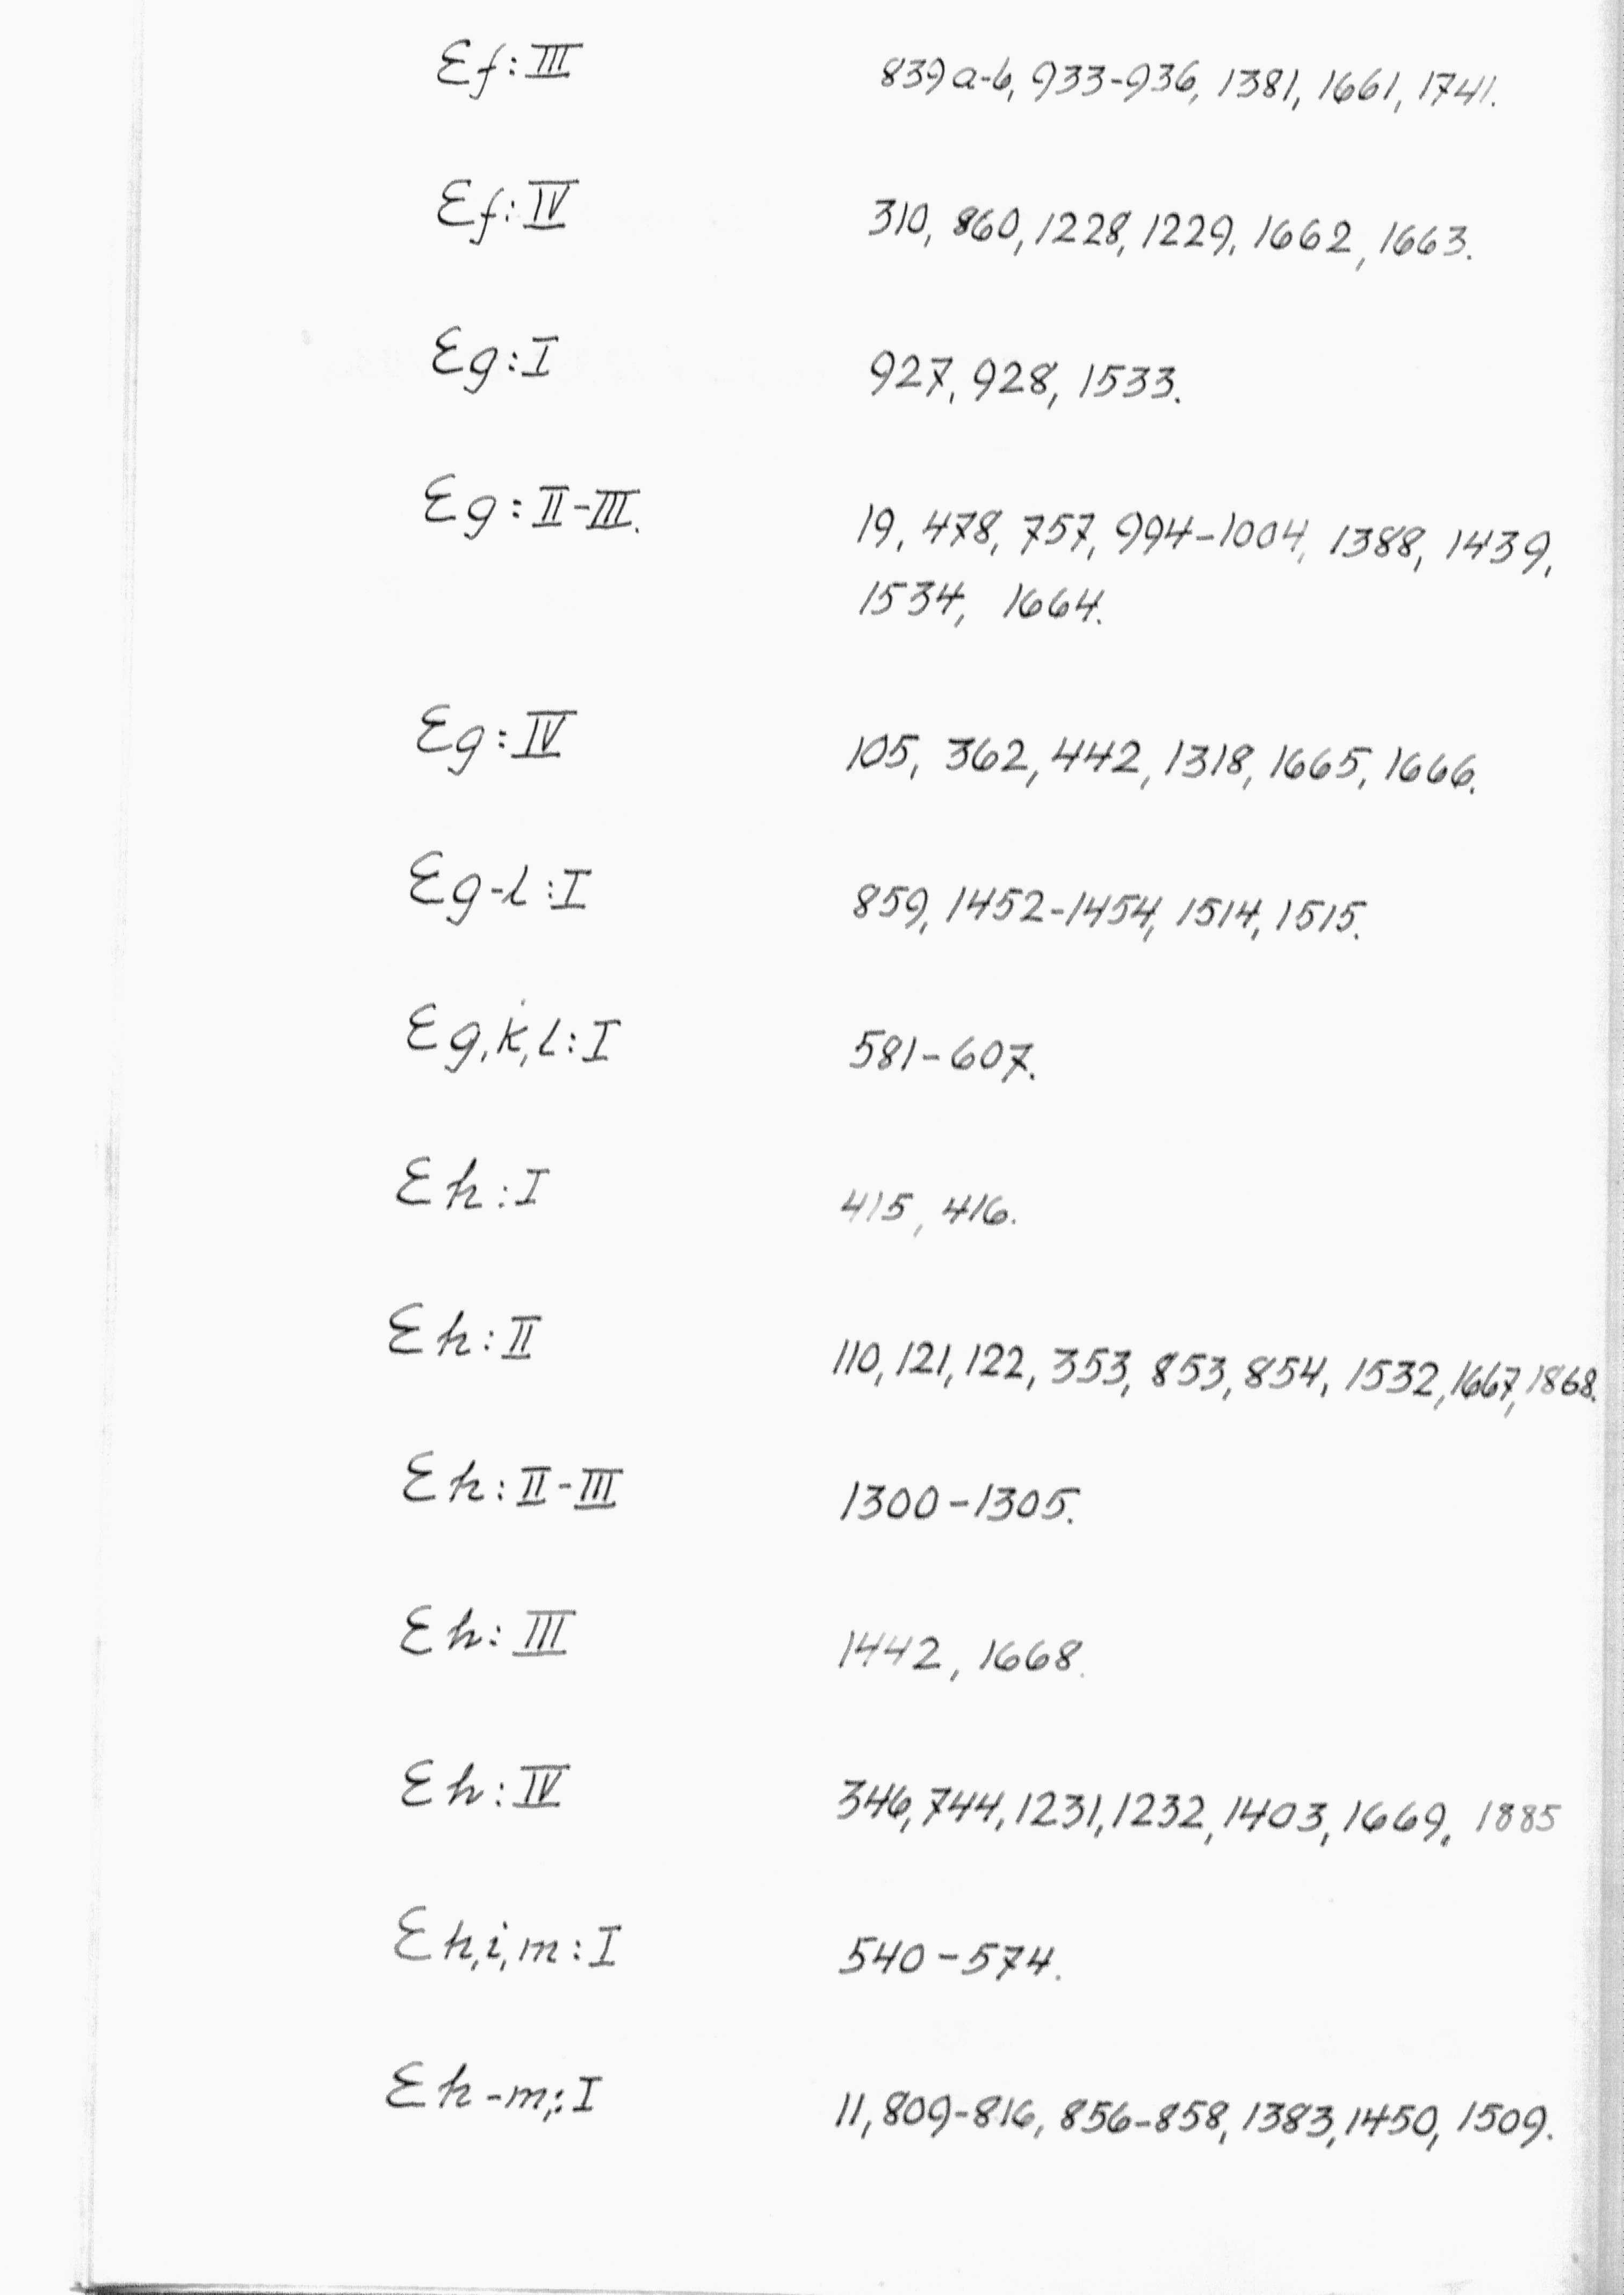 Ef:III 839a-b, 933-936, 1381, 1661, 1741.
Ef:IV 310, 860, 1228, 1229, 1662, 1663.
Eg:I 927, 928, 1533.
Eg:II-III. 19, 478, 757, 994-1004, 1388, 1439,
1534, 1664.
Eg:IV 105, 362, 442, 1318, 1665, 1666.
Eg-l:I 859, 1452-1454, 1514, 1515.
Eg,k,l:I 581-607.
Eh:I 415, 416.
Eh:II 110, 121, 122, 353, 853, 854, 1532, 1667, 1868.
Eh:II-III 1300-1305.
Eh:III 1442, 1668.
Eh:IV 346, 744, 1231, 1232, 1403, 1669, 1885
Eh,i,m:I 540-574.
Eh-m,:I 11, 809-816, 856-858, 1383, 1450, 1509.